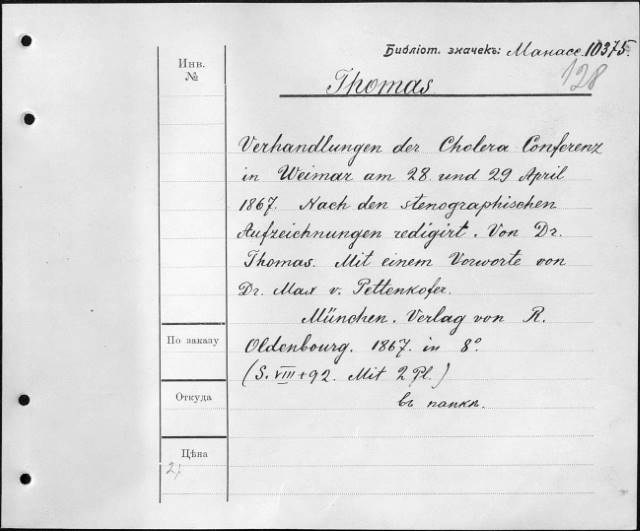 Библіот. значекъ: Манасс. 10375.
128
Инв.
№
Thomas
Verhandlungen der Cholera Conferenz
in Weimar am 28. und 29 April
1867. Nach den stenographischen
Aufzeichnungen redigirt. Von Dr.
Thomas. Mit einem Vorworte von
Dr. Max v. Pettenkofer.
München. Verlag von R.
По заказу
Oldenbourg. 1867. in 8°
(S. VIII + 92. Mit 2 Pl.)
Откуда
въ папкѣ.
Цѣна